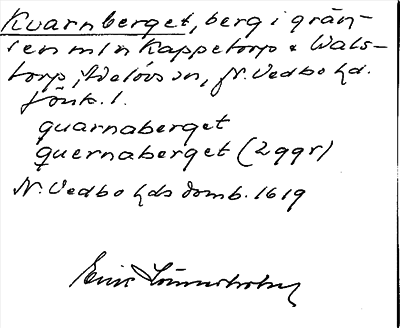 Kvarnberget, berg i grän-
sen mln Kappetorp & Wals-
torp, Adelövs sn, N. Vedbo hd.
Jönk. l.
quarnaberget
quernaberget (2 ggr)
N. Vedbo hds domb. 1619